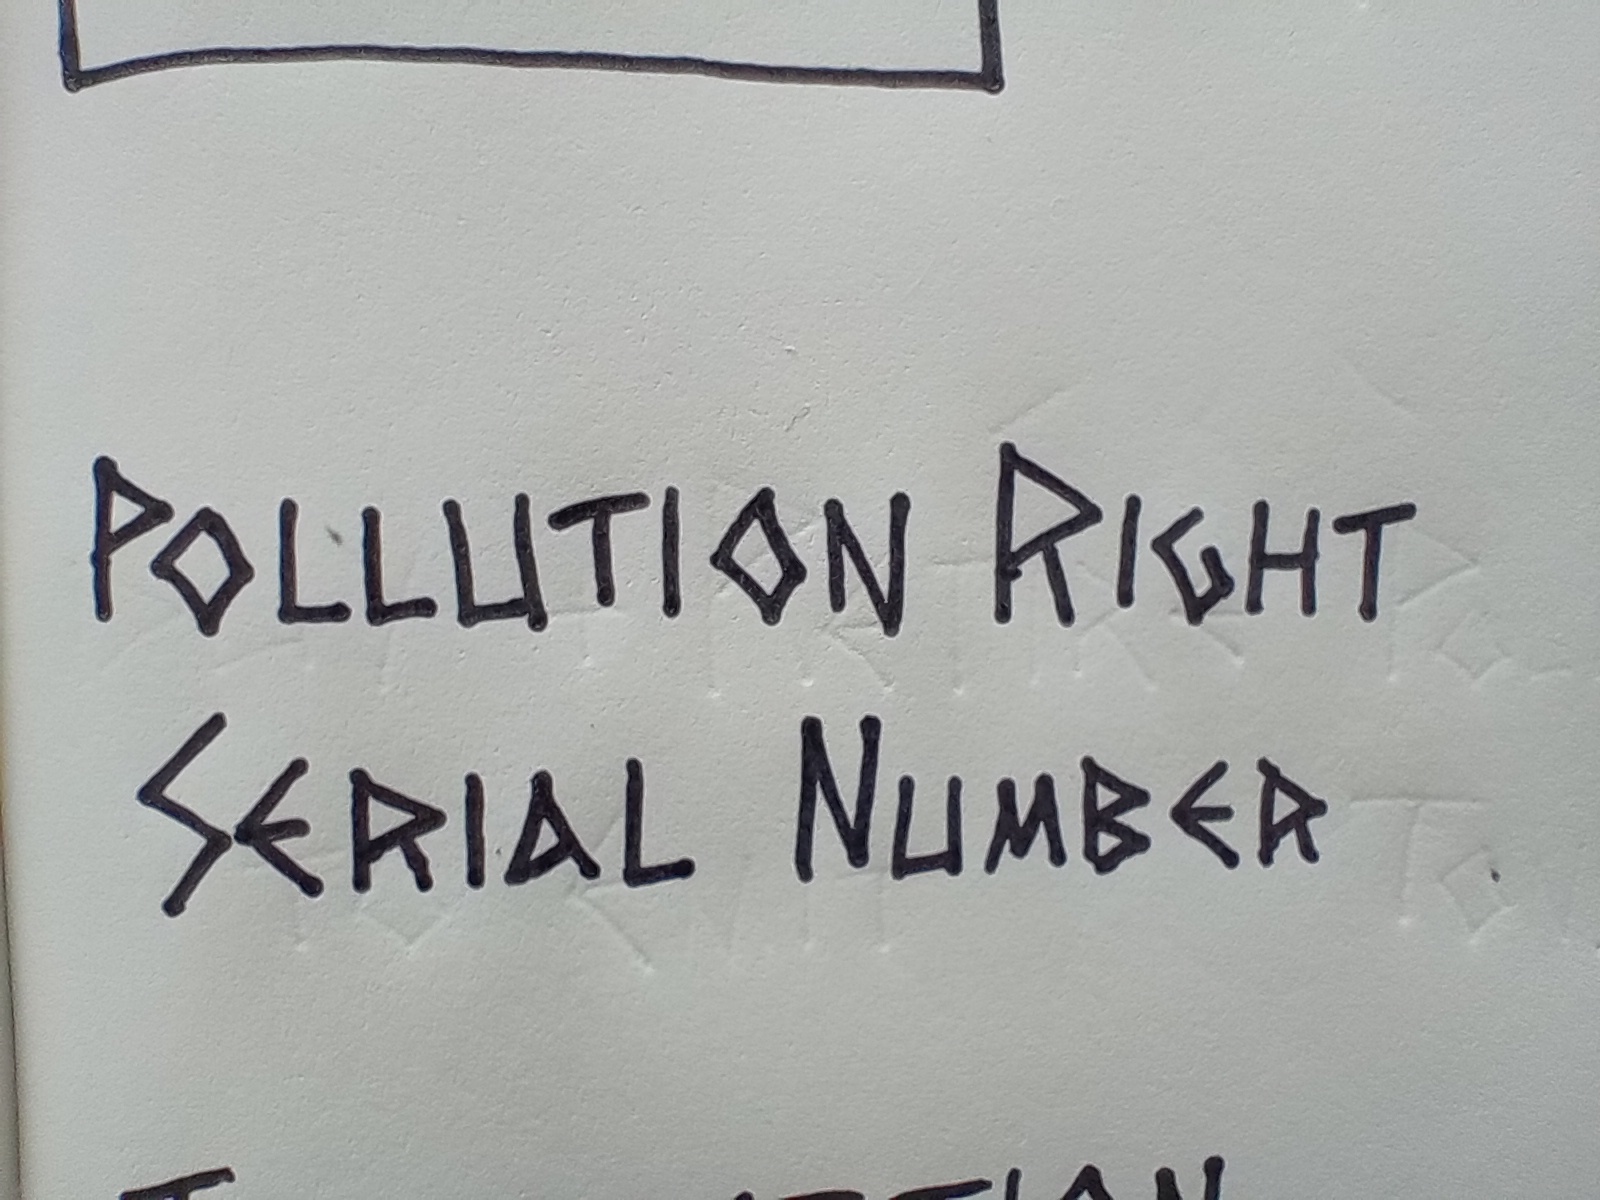 POLLUTION RIGHT
SERIAL NUMBER